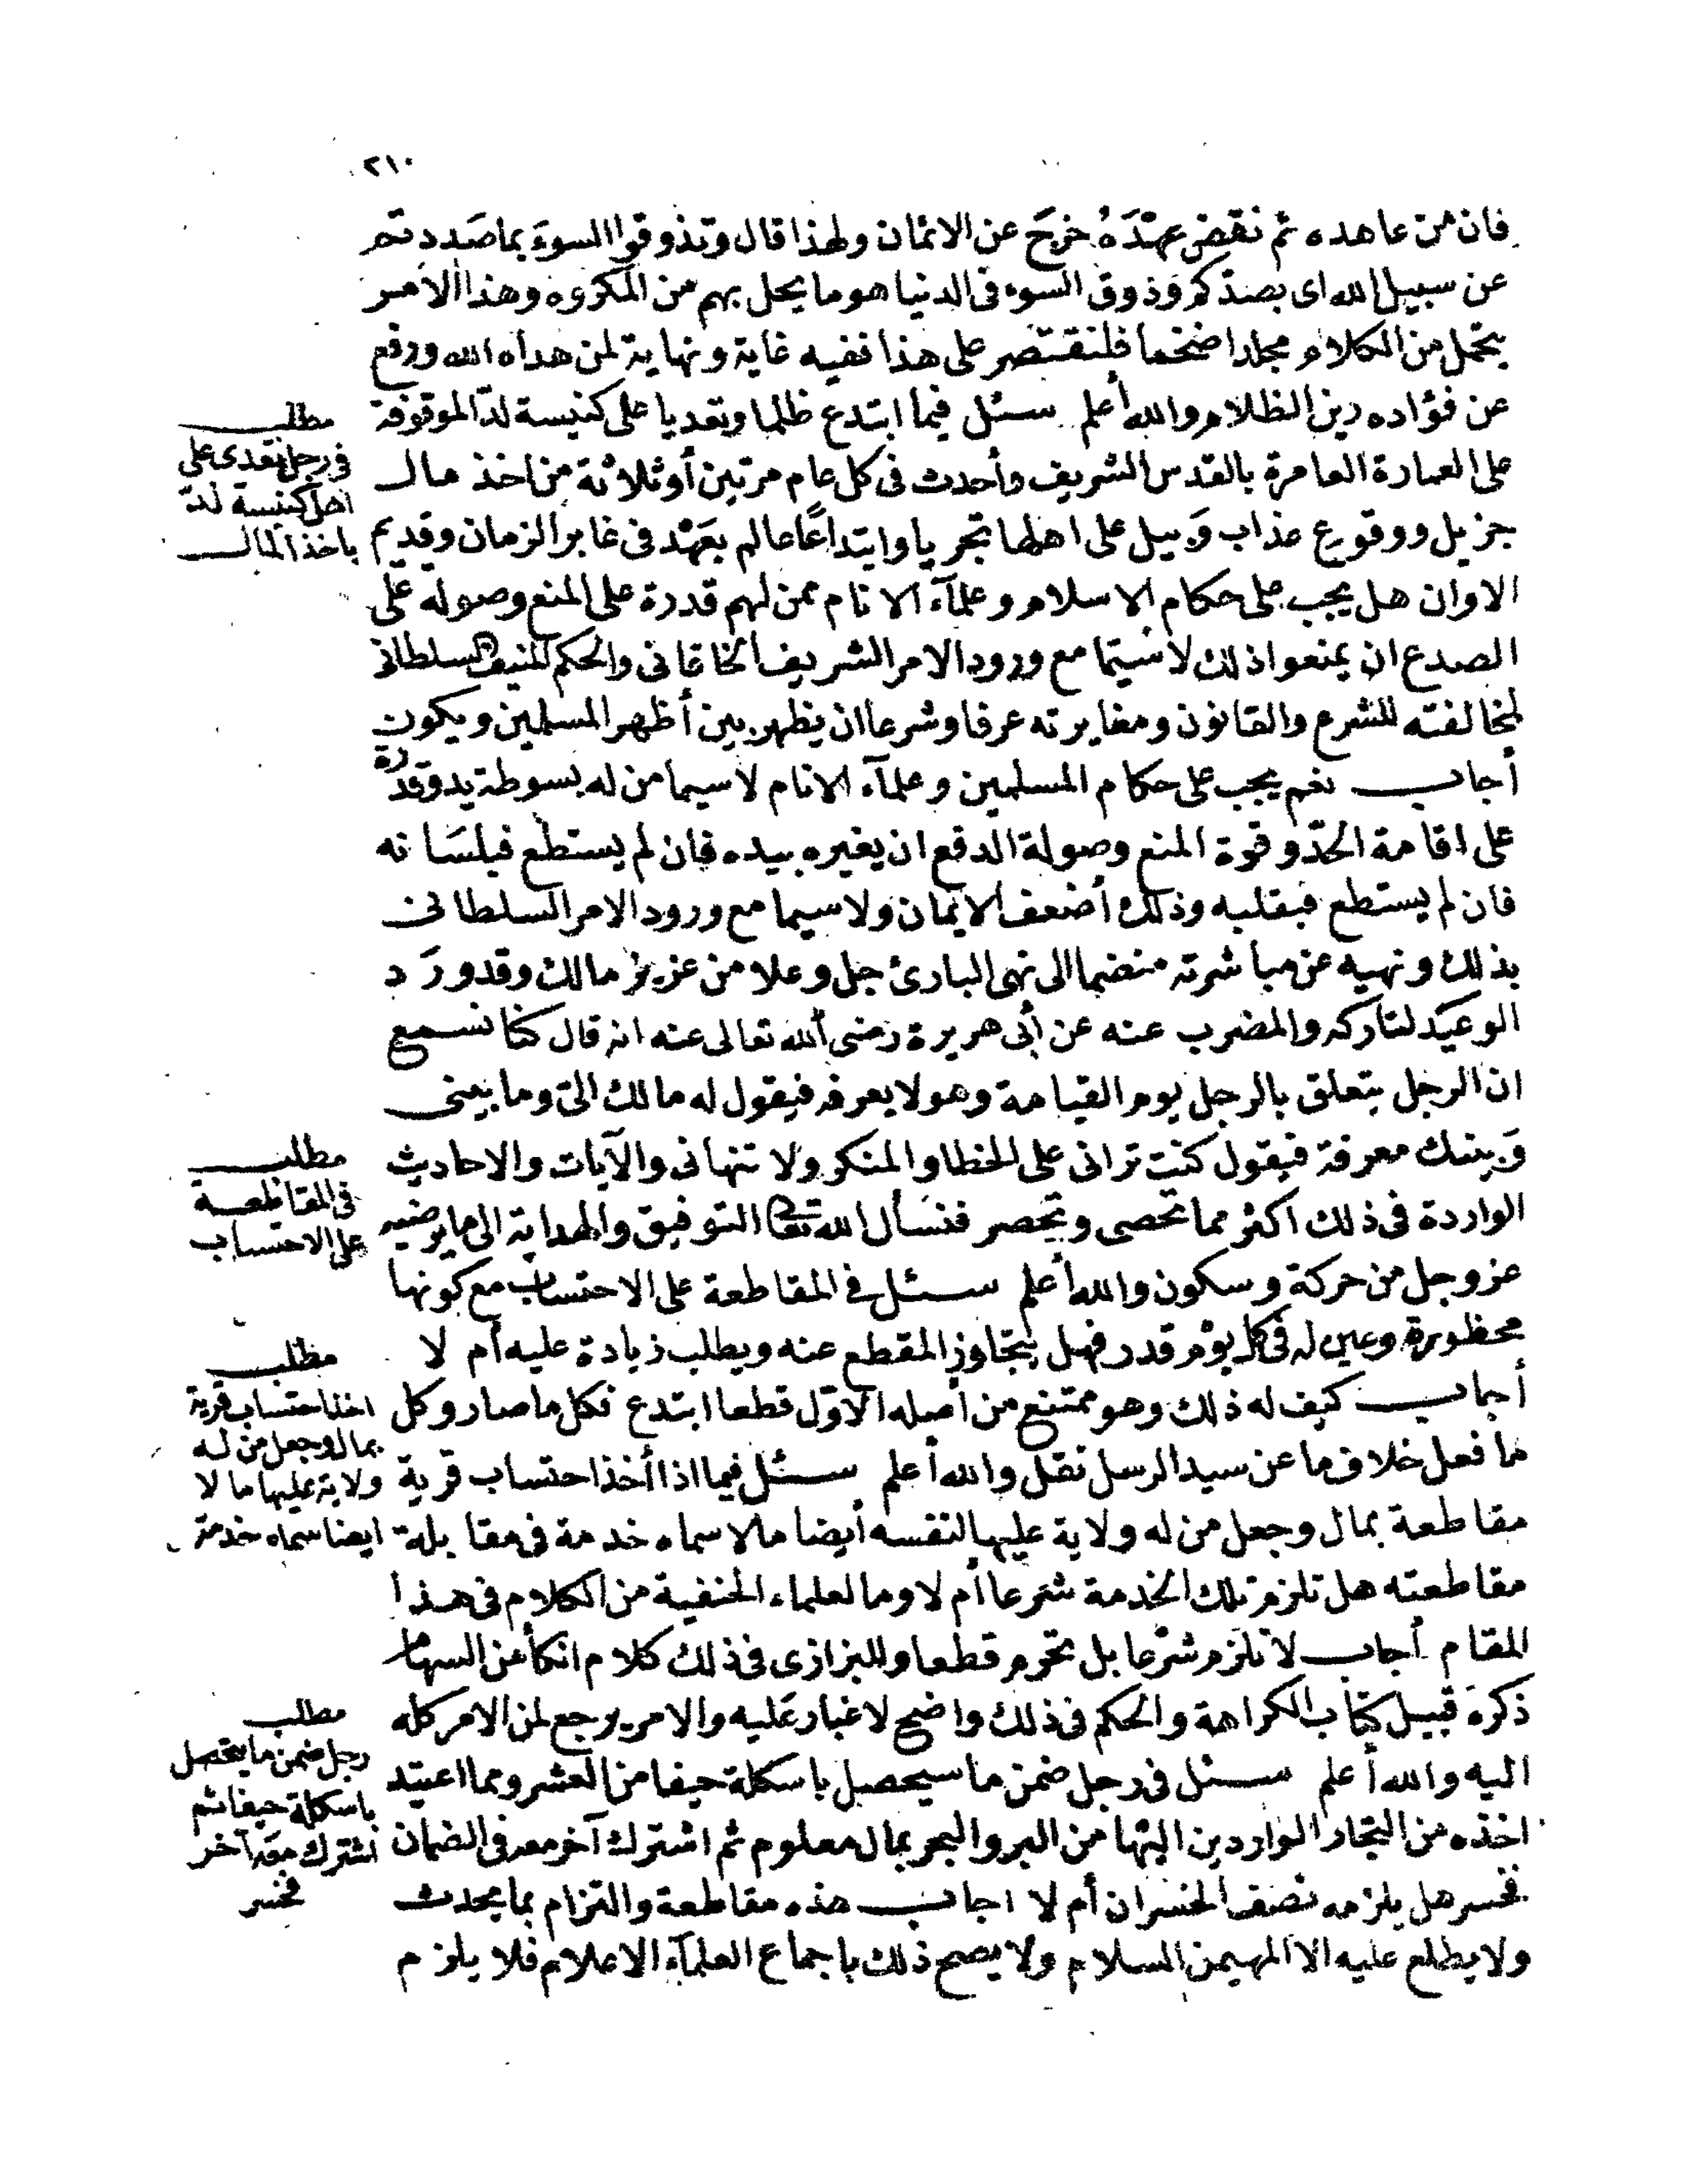 ٢١٠
فان من عاهده ثم نقض عهْدَهُ خرَج عن الائمان ولهذا قال وتذوقوا السوءَ بما صَددتم
عن سبيل الله اى بصدّكم وذوق السوء فى الدنيا هو ما يحل بهم من المكروه وهذا الامر
يتحمل من الكلام مجلدا ضخما فلنقتصر على هذا ففيه غاية ونهاية لمن هداه الله ورفع
عن فؤاده رين الظلام والله أعلم سئل فيما ابتدع ظلما وتعديا على كنيسة لدّ الموقوفة
على العمارة العامرة بالقدس الشريف وأحدث فى كل عام مرتين أو ثلاثة من اخذ مال
جزيل ووقوع عذاب وَبيل على اهلها تجريا وابتداعًا عالم بعَهْد فى غابر الزمان وقديم
الاوان هل يجب على حكام الاسلام وعلمآء الانام ممن لهم قدرة على المنع وصوله على
الصدع ان يمنعوا ذلك لا سيّما مع ورود الامر الشريف الخاقانى والحكم المنيف السلطانى
لمخالفته للشرع والقانون ومغايرته عرفا وشرعا ان يظهر بين أظهر المسلمين ويكون
أجاب نعم يجب على حكام المسلمين وعلمآء الانام لا سيما من له بسوطة يد وقدرة
على اقامة الحدّ وقوة المنع وصولة الدفع ان يغيره بيده فان لم يستطع فبلسَانه
فان لم يستطع فبقلبه وذلك أضعف الايمان ولا سيما مع ورود الامر السلطانى
بذلك ونهيه عن مباشرته منضما الى نهى البارئ جل وعلا من عزيز مالك وقد ورَد
الوعيد لتاركه والمضرب عنه عن أبى هريرة رضى الله تعالى عنه انه قال كنا نسمع
ان الرجل يتعلق بالرجل يوم القيامة وهو لا يعرفه فيقول له مالك الىّ وما بينى
وَبينك معرفة فيقول كنت ترانى على الخطا والمنكر ولا تنهانى والآيات والاحاديث
الواردة فى ذلك اكثر مما تحصى وتحصر فنسأل الله تعالى التوفيق والهداية الى ما يرضيه
عز وجل من حركة وسكون والله أعلم سئل فى المقاطعة على الاحتساب مع كونها
محظورة وعين له فى كل يوْم قدر فهل يتجاوز المقطع عنه ويطلب زيادة عليه أم لا
أجاب كيف له ذلك وهو ممتنع من أصله الاوّل قطعا ابتدع فكل ما صار وكل
ما فعل خلاف ما عن سيد الرسل نقل والله أعلم سئل فيما اذا أخذ احتساب قرية
مقاطعة بمال وجعل من له ولاية عليها لنفسه أيضا مالا سماه خدمة فى مقابلة
مقاطعته هل تلزم تلك الخدمة شرعا أم لا وما لعلماء الحنفية من الكلام فى هذا
المقام أجاب لا تلزم شرْعا بل تحرم قطعا وللبزازى فى ذلك كلام انكأ من السهام
ذكرَه قبيل كتاب الكراهة والحكم فى ذلك واضح لا غبار عَليه والامر يرجع لمن الامر كله
اليه والله أعلم سئل فى رجل ضمن ما سيحصل باسكلة حيفا من العشر ومما اعتيد
اخذه من التجار الواردين اليْها من البر والبحر بمال معلوم ثم اشترك آخر معه فى الضمان
فخسر هل يلزمه نصف الخسران أم لا اجاب هذه مقاطعة والتزام بما يحدث
ولا يطلع عليه الا المهيمن السلام ولا يصح ذلك باجماع العلمآء الاعلام فلا يلزم
مطلب
فى رجل تعدى على
اهل كنيسة لدّ
باخذ المال
مطلب
فى المقاطعة
على الاحتساب
مطلب
اخذ احتساب قرية
بمال وجعل من له
ولاية عليها مالا
ايضا سماه خدمة
مطلب
رجل ضمن ما يتحصل
باسكلة حيفا ثم
اشترك معَه آخر
فخسر